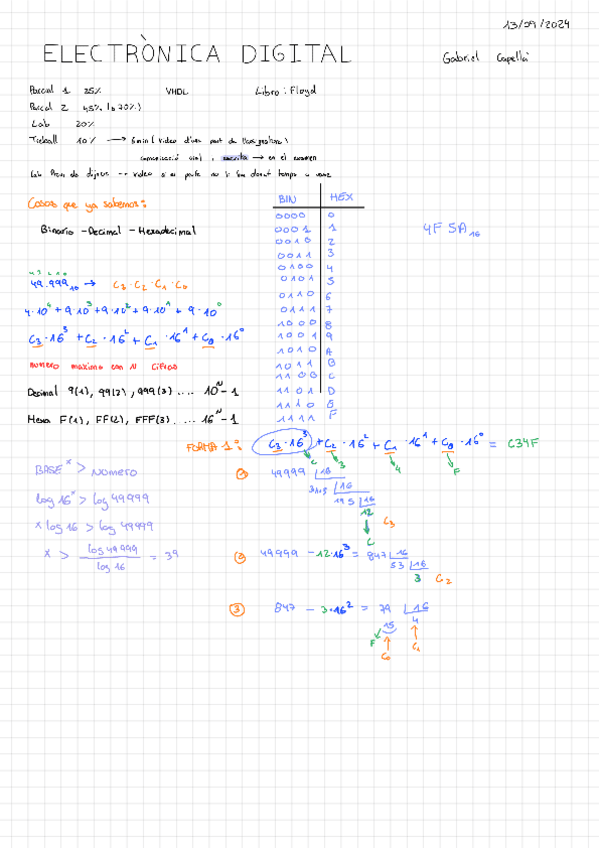 13/09/2024
ELECTRÒNICA DIGITAL
Gabriel Capellà
Parcial 1 25% VHDL Libro: Floyd
Parcial 2 45% (o 70%)
Lab 20%
Treball 10% → 5min (video
comunicació oral i escrita → en el examen
Casos que ya sabemos:
Binario - Decimal - Hexadecimal
BIN HEX
0000 0
0001 1
0010 2
0011 3
0100 4
0101 5
0110 6
0111 7
1000 8
1001 9
1010 A
1011 B
1100 C
1101 D
1110 E
1111 F
4F5A₁₆
4 3 2 1 0
49.999₁₀ → C₃ · C₂ · C₁ · C₀
4·10⁴ + 9·10³ + 9·10² + 9·10¹ + 9·10⁰
C₃·16³ + C₂·16² + C₁·16¹ + C₀·16⁰
numero maximo con N cifras
Decimal 9(1), 99(2), 999(3) .... 10ᴺ-1
Hexa F(1), FF(2), FFF(3) .... 16ᴺ-1
FORMA 1: C₃·16³ + C₂·16² + C₁·16¹ + C₀·16⁰ = C34F
C 3 4 F
BASEˣ > Numero
log 16ˣ > log 49999
x log 16 > log 49999
x > log 49999 / log 16 = 3,9
① 49999 |16
|16
195 |16
12
C₃
C
② 49999 - 12·16³ = 847 |16
|16
3 C₂
③ 847 - 3·16² = 79 |16
15 4
F C₀ C₁